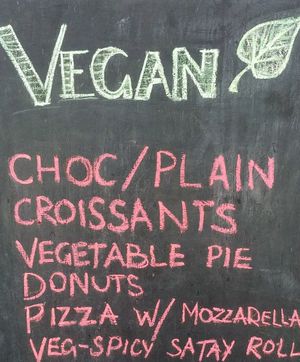 VEGAN
CHOC/PLAIN
CROISSANTS
VEGETABLE PIE
DONUTS
PIZZA W/ MOZZARELLA
VEG-SPICY SATAY ROLL